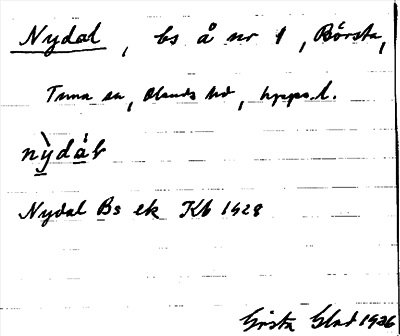 Nydal, bs å nr 1, Börsta,
Tuna sn, Olands hd, Upps. l.
nỳdȧ̀l
Nydal Bs ek Kb 1928
Gösta Glad 1936